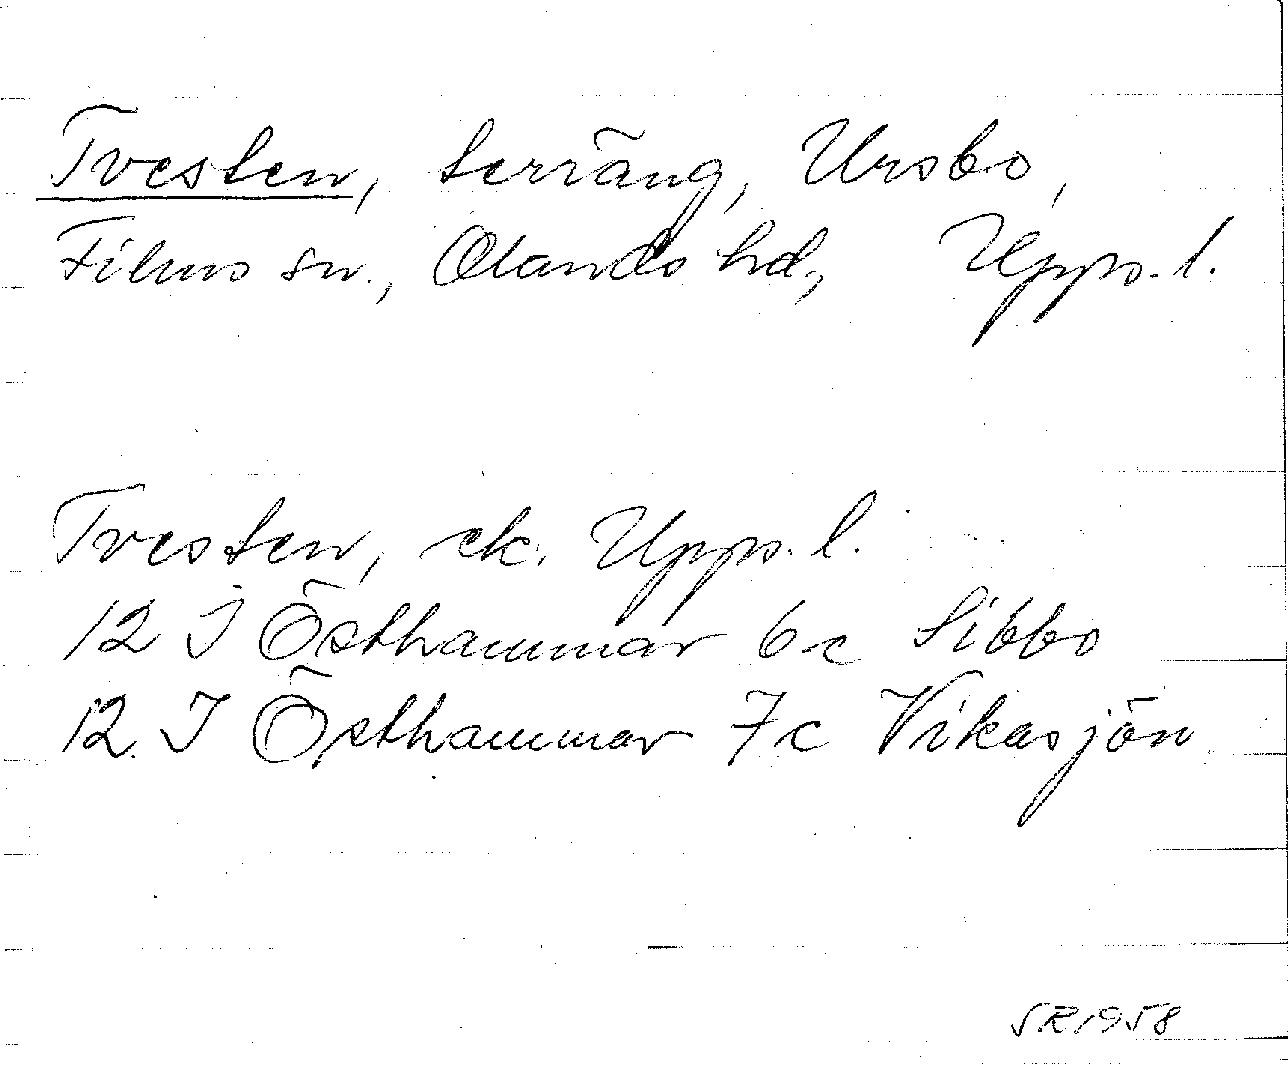 Tvesten, terräng, Ursbo,
Films sn., Olands hd, Upps. l.
Tvesten, ek. Upps. l.
12 I Östhammar 6c Sibbo
12 I Östhammar 7c Vikasjön
SR 1958